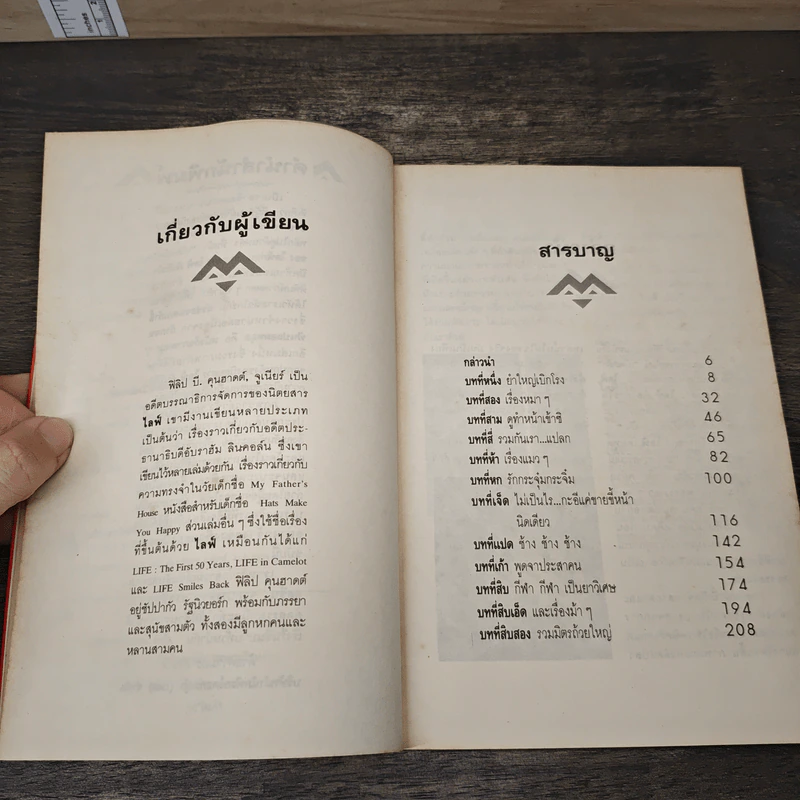 inches
เกี่ยวกับผู้เขียน
ฟิลิป บี. คุนฮาดต์, จูเนียร์ เป็น
อดีตบรรณาธิการจัดการของนิตยสาร
ไลฟ์ เขามีงานเขียนหลายประเภท
เป็นต้นว่า เรื่องราวเกี่ยวกับอดีตประ-
ธานาธิบดีอับราฮัม ลินคอล์น ซึ่งเขา
เขียนไว้หลายเล่มด้วยกัน เรื่องราวเกี่ยวกับ
ความทรงจำในวัยเด็กชื่อ My Father's
House หนังสือสำหรับเด็กชื่อ Hats Make
You Happy ส่วนเล่มอื่น ๆ ซึ่งใช้ชื่อเรื่อง
ที่ขึ้นต้นด้วย ไลฟ์ เหมือนกันได้แก่
LIFE : The First 50 Years, LIFE in Camelot
และ LIFE Smiles Back ฟิลิป คุนฮาดต์
อยู่ชัปปากัว รัฐนิวยอร์ก พร้อมกับภรรยา
และสุนัขสามตัว ทั้งสองมีลูกหกคนและ
หลานสามคน
สารบาญ
กล่าวนำ 6
บทที่หนึ่ง ยำใหญ่เบิกโรง 8
บทที่สอง เรื่องหมา ๆ 32
บทที่สาม ดูทำหน้าเข้าซิ 46
บทที่สี่ รวมกันเรา...แปลก 65
บทที่ห้า เรื่องแมว ๆ 82
บทที่หก รักกระจุ๋มกระจิ๋ม 100
บทที่เจ็ด ไม่เป็นไร...กะอีแค่ขายขี้หน้า
นิดเดียว 116
บทที่แปด ช้าง ช้าง ช้าง 142
บทที่เก้า พูดจาประสาคน 154
บทที่สิบ กีฬา กีฬา เป็นยาวิเศษ 174
บทที่สิบเอ็ด และเรื่องม้า ๆ 194
บทที่สิบสอง รวมมิตรถ้วยใหญ่ 208